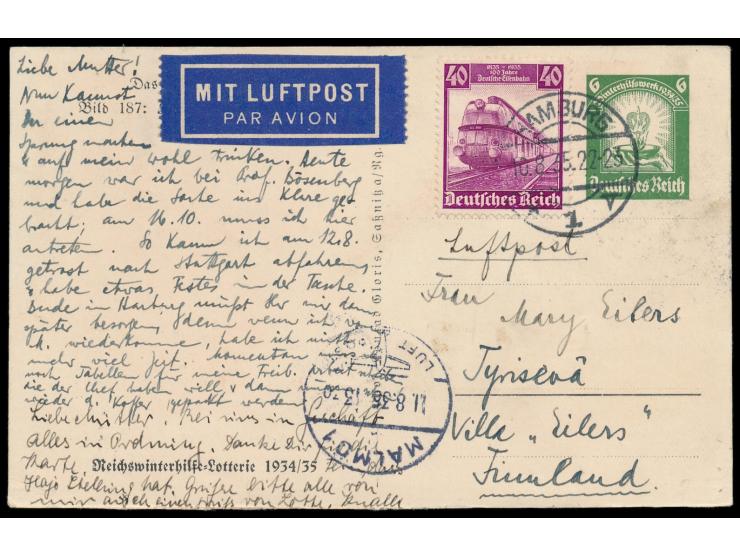 Liebe Mutter!
Nun kannst
Du einen
Sprung machen
& auf mein Wohl trinken. Heute
morgen war ich bei Prof. Bösenberg
und habe die Sache ins Klare ge-
bracht; am 16.10. muss ich hier
antreten. So kann ich am 12.8.
getrost nach Stuttgart abfahren,
& habe etwas Festes in der Tasche.
Bude in Harburg müßt Ihr mir dann
später besorgen, denn wenn ich
wiederkomme, habe ich nicht
mehr viel Zeit. Momentan
noch Tabellen für meine Arbeit
die der Chef haben will & dann
wieder d. Koffer gepackt werden
Liebe Mutter, Bei uns im Geschäft
alles in Ordnung. Danke Dir für
Karte.
hat. Grüße bitte alle von
mir auch einen Gruß von Lotte,
Das
Bild 187:
Reichswinterhilfe-Lotterie 1934/35
MIT LUFTPOST
PAR AVION
40 1835-1935 40
100 Jahre
Deutsche Eisenbahn
Deutsches Reich
6 Winterhilfswerk 1934/35 6
Deutsches Reich
HAMBURG
10.8.35.22-23
1
LUFT
11.8.35 13-70
MALMÖ 1
Luftpost
Frau Mary Eilers
Tyrisevä
Villa „Eilers"
Finnland.